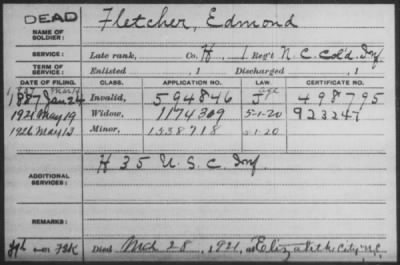 DEAD
NAME OF SOLDIER: Fletcher, Edmond
SERVICE: Late rank, Co. H, 1 Reg't N. C. Col'd Inf
TERM OF SERVICE: Enlisted , 1 Discharged , 1
DATE OF FILING. CLASS. APPLICATION NO. LAW. CERTIFICATE NO.
1887 Jan 24 Invalid, 594846 J age 498795
1921 May 19 Widow, 1174309 5-1-20 923247
1926 May 12 Minor, 1538718 5-1-20
ADDITIONAL SERVICES: H 35 U. S. C. Inf
REMARKS:
Died Mch 28, 1921, at Elizabeth City N.C.